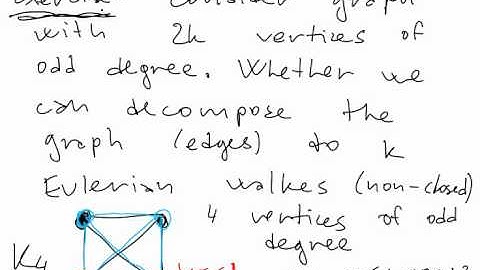 consider graph
with 2k vertices of
odd degree. Whether we
can decompose the
graph (edges) to k
Eulerian walkes (non-closed)
4 vertices of odd
degree
K4